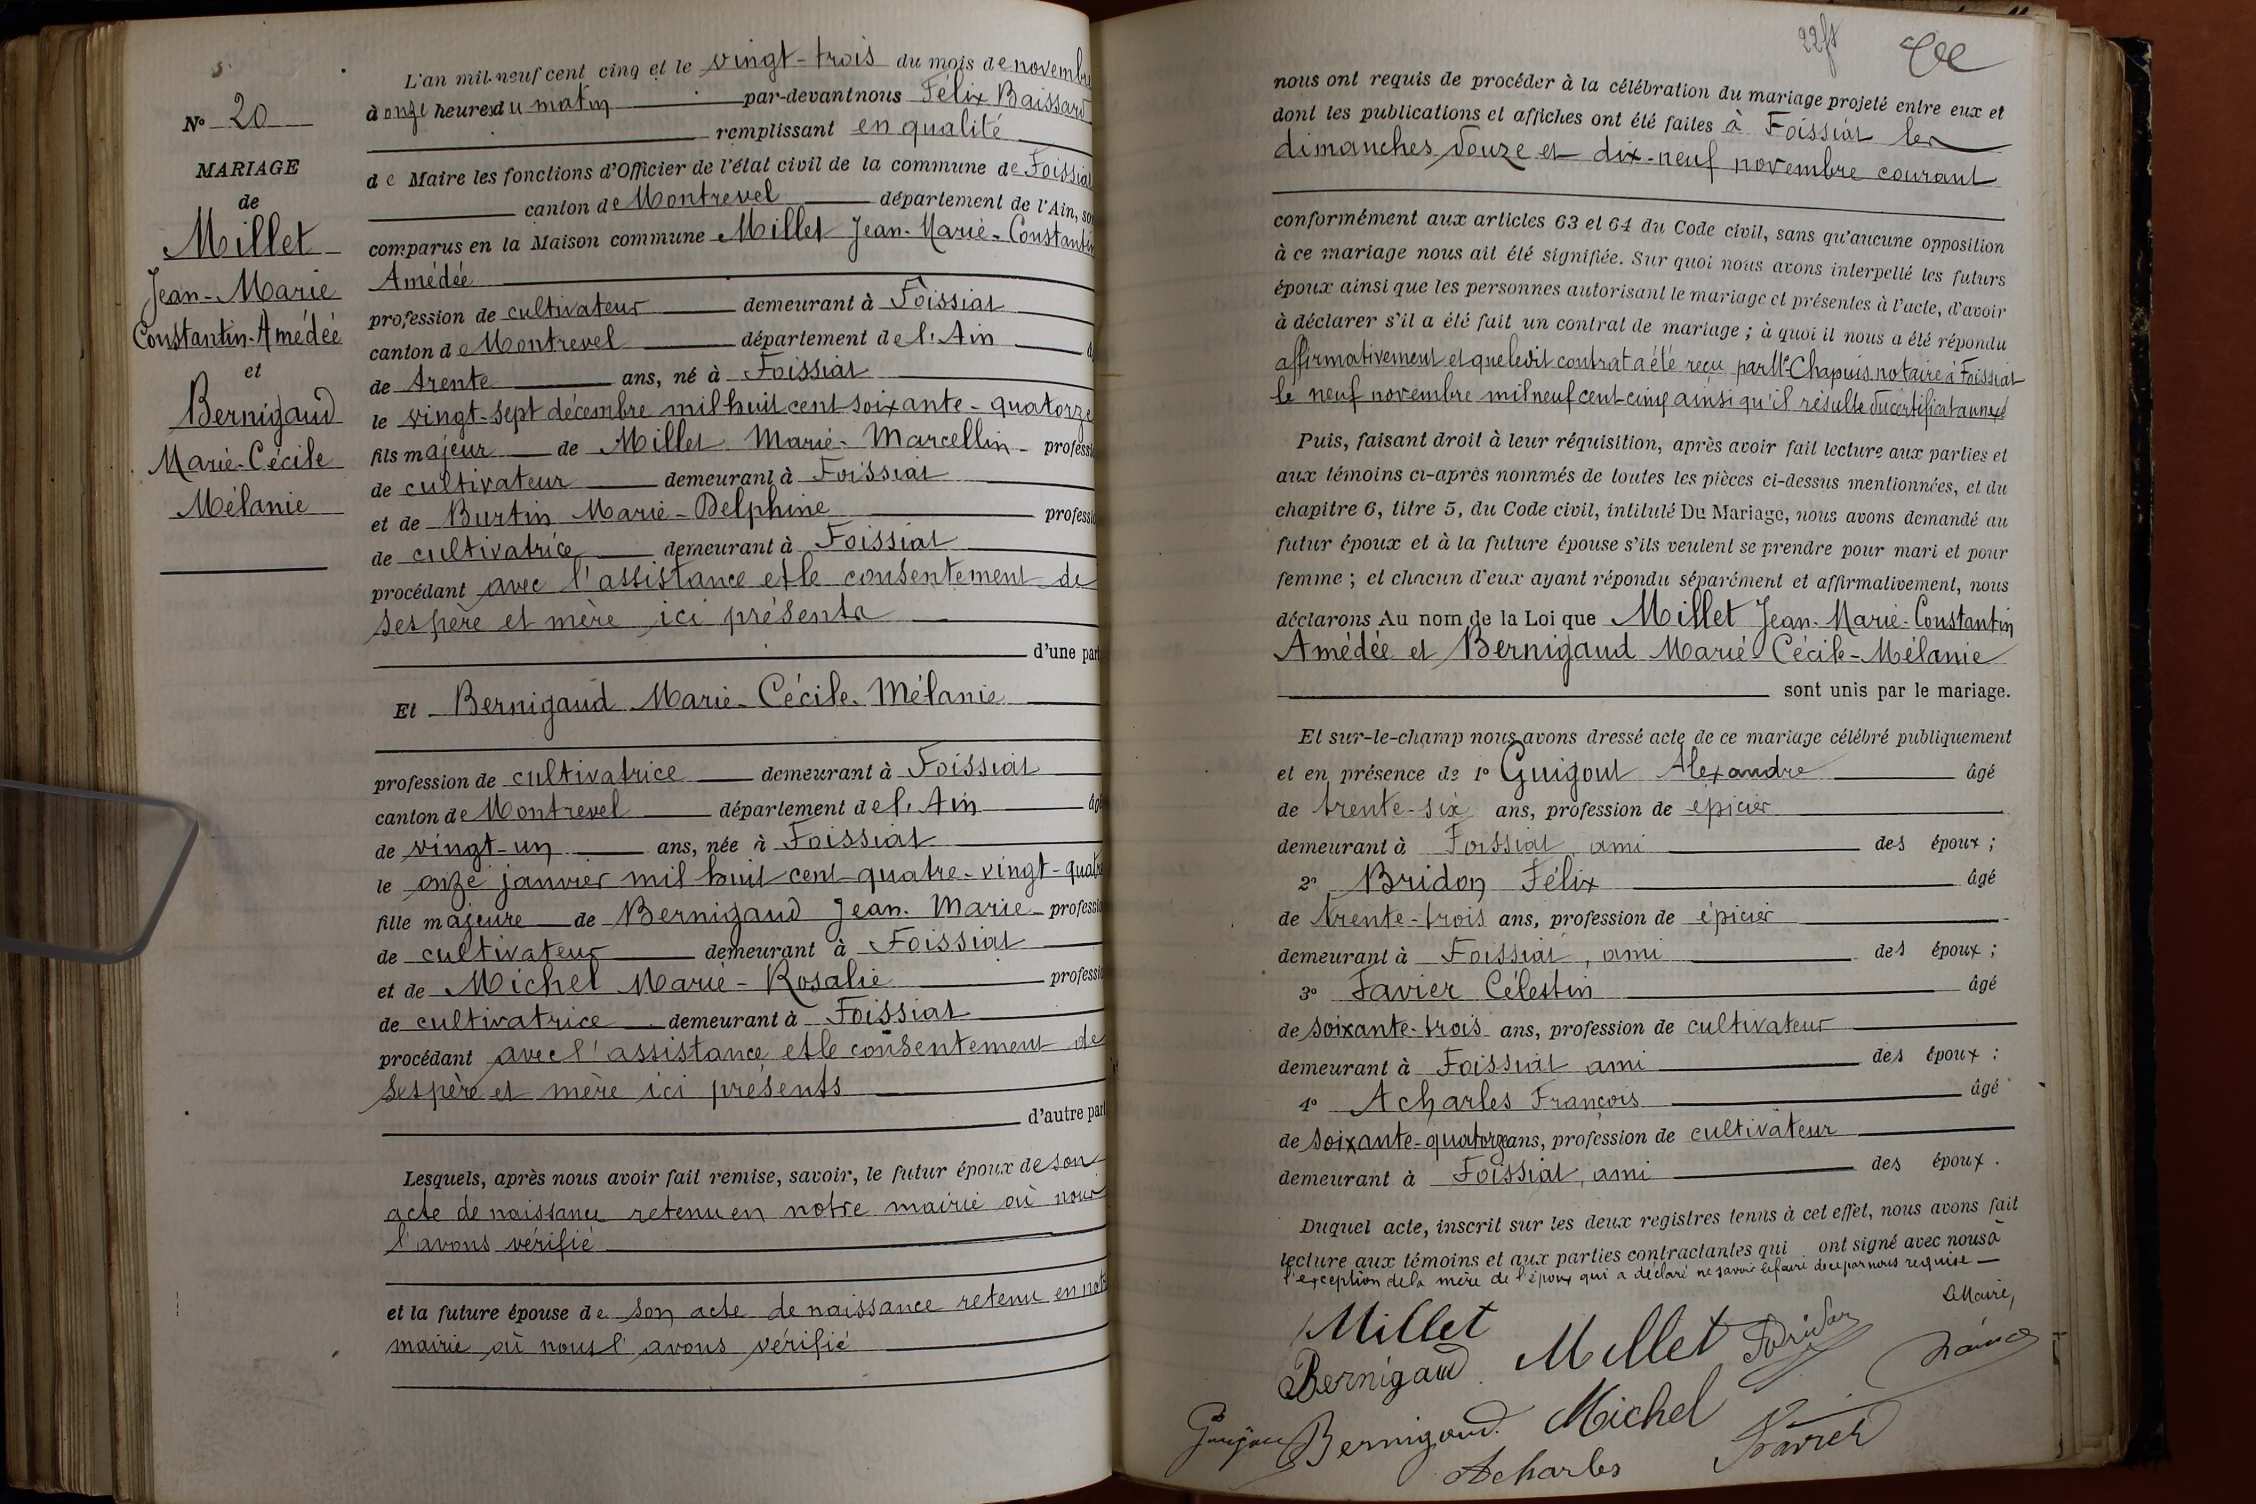 N° 20
MARIAGE
de
Millet
Jean-Marie
Constantin-Amédée
et
Bernigaud
Marie-Cécile
Mélanie
L'an mil-neuf cent cinq et le vingt-trois du mois de novembre
à onze heures du matin par-devant nous Félix Baissard
remplissant en qualité
de Maire les fonctions d'Officier de l'état civil de la commune de Foissiat
canton de Montrevel département de l'Ain, so
comparus en la Maison commune Millet Jean-Marie-Constantin
Amédée
profession de cultivateur demeurant à Foissiat
canton de Montrevel département de l'Ain
de trente ans, né à Foissiat
le vingt-sept décembre mil huit cent soixante-quatorze
fils majeur de Millet Marie-Marcellin professi
de cultivateur demeurant à Foissiat
et de Burtin Marie-Delphine professi
de cultivatrice demeurant à Foissiat
procédant avec l'assistance et le consentement de
ses père et mère ici présents
d'une part
Et Bernigaud Marie-Cécile-Mélanie
profession de cultivatrice demeurant à Foissiat
canton de Montrevel département de l'Ain âgé
de vingt-un ans, née à Foissiat
le onze janvier mil huit cent quatre-vingt-quatre
fille majeure de Bernigaud Jean-Marie professi
de cultivateur demeurant à Foissiat
et de Michel Marie-Rosalie professi
de cultivatrice demeurant à Foissiat
procédant avec l'assistance et le consentement de
ses père et mère ici présents
d'autre part
Lesquels, après nous avoir fait remise, savoir, le futur époux de son
acte de naissance retenu en notre mairie où nous
l'avons vérifié
et la future épouse de son acte de naissance retenu en notre
mairie où nous l'avons vérifié
22ft
nous ont requis de procéder à la célébration du mariage projeté entre eux et
dont les publications et affiches ont été faites à Foissiat les
dimanches douze et dix-neuf novembre courant
conformément aux articles 63 et 64 du Code civil, sans qu'aucune opposition
à ce mariage nous ait été signifiée. Sur quoi nous avons interpellé les futurs
époux ainsi que les personnes autorisant le mariage et présentes à l'acte, d'avoir
à déclarer s'il a été fait un contrat de mariage ; à quoi il nous a été répondu
affirmativement et que ledit contrat a été reçu par Me Chapuis notaire à Foissiat
le neuf novembre mil neuf cent cinq ainsi qu'il résulte du certificat annexé
Puis, faisant droit à leur réquisition, après avoir fait lecture aux parties et
aux témoins ci-après nommés de toutes les pièces ci-dessus mentionnées, et du
chapitre 6, titre 5, du Code civil, intitulé Du Mariage, nous avons demandé au
futur époux et à la future épouse s'ils veulent se prendre pour mari et pour
femme ; et chacun d'eux ayant répondu séparément et affirmativement, nous
déclarons Au nom de la Loi que Millet Jean-Marie-Constantin
Amédée et Bernigaud Marie Cécile-Mélanie
sont unis par le mariage.
Et sur-le-champ nous avons dressé acte de ce mariage célébré publiquement
et en présence de 1° Guigout Alexandre âgé
de trente-six ans, profession de épicier
demeurant à Foissiat, ami des époux ;
2° Bridon Félix âgé
de trente-trois ans, profession de épicier
demeurant à Foissiat, ami des époux ;
3° Favier Célestin âgé
de soixante-trois ans, profession de cultivateur
demeurant à Foissiat ami des époux :
4° Acharles François âgé
de soixante-quatorze ans, profession de cultivateur
demeurant à Foissiat, ami des époux.
Duquel acte, inscrit sur les deux registres tenus à cet effet, nous avons fait
lecture aux témoins et aux parties contractantes qui ont signé avec nous à
l'exception de la mère de l'époux qui a déclaré ne savoir le faire de ce par nous requise
Le Maire,
Millet
Millet
Bernigaud
Bernigaud
Michel
Favier
Acharles